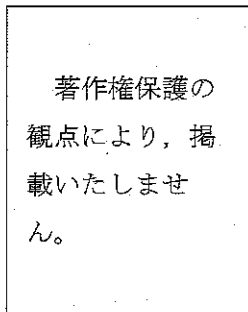 著作権保護の
観点により，掲
載いたしませ
ん。